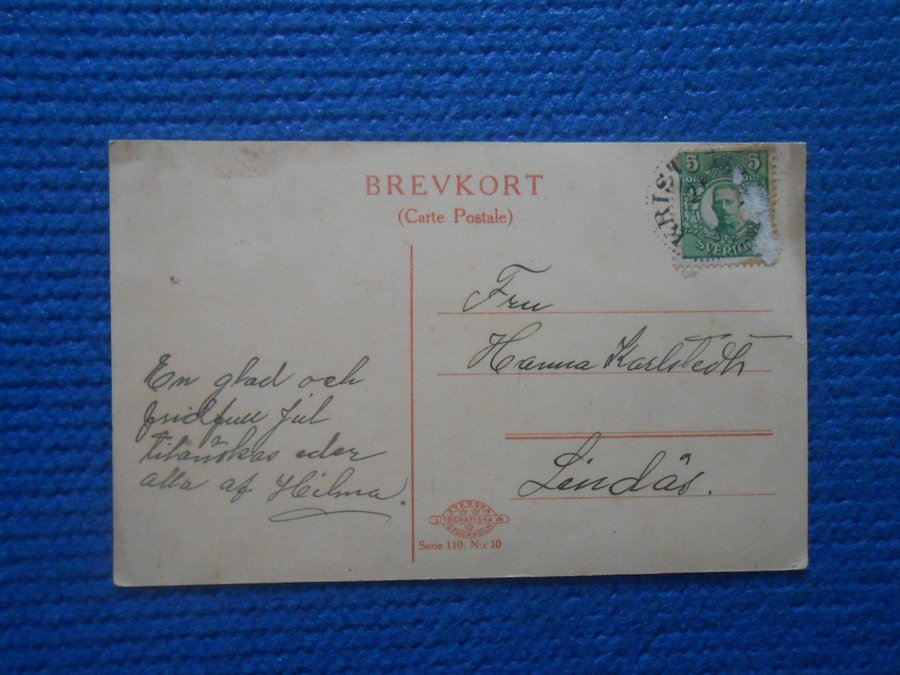 BREVKORT
(Carte Postale)
KRIST
5 5
ÖRE
SVERIGE
Fru
Hanna Karlstedt
Lindås.
En glad och
fridfull jul
tilönskas eder
alla af Hilma
SVENSKA
LITOGRAFISKA AB
STOCKHOLM
Serie 110. N:o 10